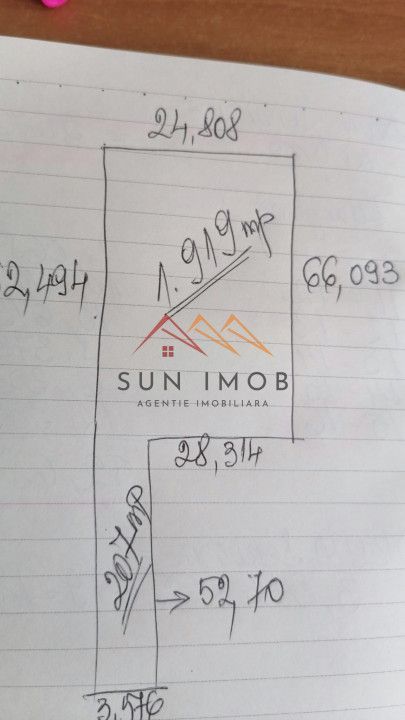 24,808
1.919 mp
2,494
66,093
SUN IMOB
AGENTIE IMOBILIARA
28,314
207 mp
52,70
3,576